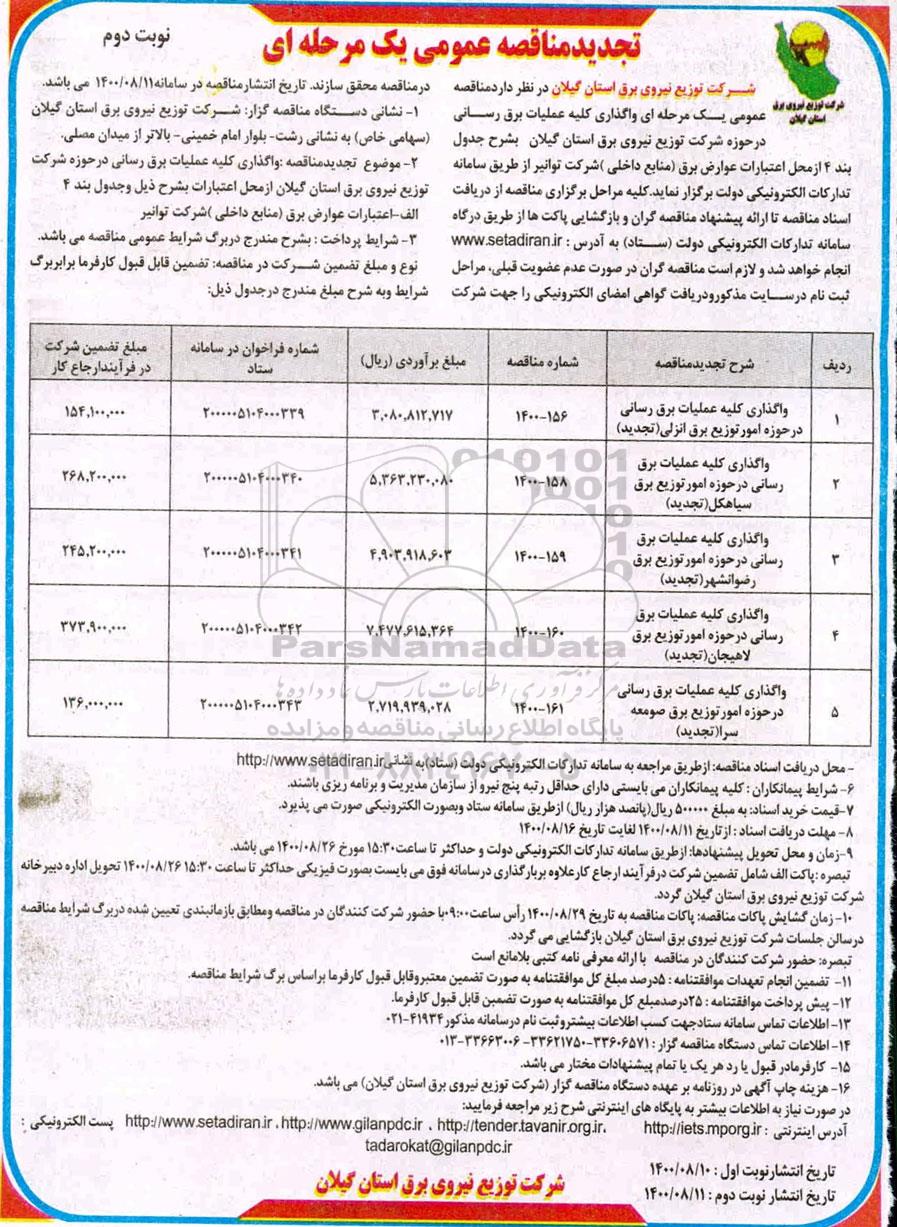 تجدیدمناقصه عمومی یک مرحله ای
نوبت دوم
شرکت توزیع نیروی برق
استان گیلان
شرکت توزیع نیروی برق استان گیلان در نظر دارد مناقصه
عمومی یک مرحله ای واگذاری کلیه عملیات برق رسانی
درحوزه شرکت توزیع نیروی برق استان گیلان بشرح جدول
بند ۴ ازمحل اعتبارات عوارض برق (منابع داخلی )شرکت توانیر از طریق سامانه
تدارکات الکترونیکی دولت برگزار نماید.کلیه مراحل برگزاری مناقصه از دریافت
اسناد مناقصه تا ارائه پیشنهاد مناقصه گران و بازگشایی پاکت ها از طریق درگاه
سامانه تدارکات الکترونیکی دولت (ستاد) به آدرس : www.setadiran.ir
انجام خواهد شد و لازم است مناقصه گران در صورت عدم عضویت قبلی، مراحل
ثبت نام درسایت مذکورودریافت گواهی امضای الکترونیکی را جهت شرکت
درمناقصه محقق سازند. تاریخ انتشارمناقصه در سامانه۱۴۰۰/۰۸/۱۱ می باشد.
۱- نشانی دستگاه مناقصه گزار: شرکت توزیع نیروی برق استان گیلان
(سهامی خاص) به نشانی رشت- بلوار امام خمینی- بالاتر از میدان مصلی.
۲- موضوع تجدیدمناقصه :واگذاری کلیه عملیات برق رسانی درحوزه شرکت
توزیع نیروی برق استان گیلان ازمحل اعتبارات بشرح ذیل وجدول بند ۴
الف-اعتبارات عوارض برق (منابع داخلی )شرکت توانیر
۳- شرایط پرداخت : بشرح مندرج دربرگ شرایط عمومی مناقصه می باشد.
نوع و مبلغ تضمین شرکت در مناقصه: تضمین قابل قبول کارفرما برابربرگ
شرایط وبه شرح مبلغ مندرج درجدول ذیل:
ردیف شرح تجدیدمناقصه شماره مناقصه مبلغ برآوردی (ریال) شماره فراخوان در سامانه ستاد مبلغ تضمین شرکت در فرآیندارجاع کار
۱ واگذاری کلیه عملیات برق رسانی درحوزه امورتوزیع برق انزلی(تجدید) ۱۴۰۰-۱۵۶ ۳,۰۸۰,۸۱۲,۷۱۷ ۲۰۰۰۰۰۵۱۰۴۰۰۰۳۳۹ ۱۵۴,۱۰۰,۰۰۰
۲ واگذاری کلیه عملیات برق رسانی درحوزه امورتوزیع برق سیاهکل(تجدید) ۱۴۰۰-۱۵۸ ۵,۳۶۳,۲۳۰,۰۸۰ ۲۰۰۰۰۰۵۱۰۴۰۰۰۳۴۰ ۲۶۸,۲۰۰,۰۰۰
۳ واگذاری کلیه عملیات برق رسانی درحوزه امورتوزیع برق رضوانشهر(تجدید) ۱۴۰۰-۱۵۹ ۴,۹۰۳,۹۱۸,۶۰۳ ۲۰۰۰۰۰۵۱۰۴۰۰۰۳۴۱ ۲۴۵,۲۰۰,۰۰۰
۴ واگذاری کلیه عملیات برق رسانی درحوزه امورتوزیع برق لاهیجان(تجدید) ۱۴۰۰-۱۶۰ ۷,۴۷۷,۶۱۵,۳۶۴ ۲۰۰۰۰۰۵۱۰۴۰۰۰۳۴۲ ۳۷۳,۹۰۰,۰۰۰
۵ واگذاری کلیه عملیات برق رسانی درحوزه امورتوزیع برق صومعه سرا(تجدید) ۱۴۰۰-۱۶۱ ۲,۷۱۹,۹۳۹,۰۲۸ ۲۰۰۰۰۰۵۱۰۴۰۰۰۳۴۳ ۱۳۶,۰۰۰,۰۰۰
ParsNamadData
مرکز فرآوری اطلاعات پارس نماد داده ها
پایگاه اطلاع رسانی مناقصه و مزایده
- محل دریافت اسناد مناقصه: ازطریق مراجعه به سامانه تدارکات الکترونیکی دولت (ستاد)به نشانی http://www.setadiran.ir
۶- شرایط پیمانکاران : کلیه پیمانکاران می بایستی دارای حداقل رتبه پنج نیرو از سازمان مدیریت و برنامه ریزی باشند.
۷-قیمت خرید اسناد: به مبلغ ۵۰۰۰۰۰ ریال(پانصد هزار ریال) ازطریق سامانه ستاد وبصورت الکترونیکی صورت می پذیرد.
۸- مهلت دریافت اسناد : ازتاریخ ۱۴۰۰/۰۸/۱۱ لغایت تاریخ ۱۴۰۰/۰۸/۱۶
۹-زمان و محل تحویل پیشنهادها: ازطریق سامانه تدارکات الکترونیکی دولت و حداکثر تا ساعت۱۵:۳۰ مورخ ۱۴۰۰/۰۸/۲۶ می باشد.
تبصره :پاکت الف شامل تضمین شرکت درفرآیند ارجاع کارعلاوه بربارگذاری درسامانه فوق می بایست بصورت فیزیکی حداکثر تا ساعت ۱۵:۳۰ ۱۴۰۰/۰۸/۲۶ تحویل اداره دبیرخانه
شرکت توزیع نیروی برق استان گیلان گردد.
۱۰- زمان گشایش پاکات مناقصه: پاکات مناقصه به تاریخ ۱۴۰۰/۰۸/۲۹ رأس ساعت۰۹:۰۰با حضور شرکت کنندگان در مناقصه ومطابق بازمانبندی تعیین شده دربرگ شرایط مناقصه
درسالن جلسات شرکت توزیع نیروی برق استان گیلان بازگشایی می گردد.
تبصره: حضور شرکت کنندگان در مناقصه با ارائه معرفی نامه کتبی بلامانع است
۱۱- تضمین انجام تعهدات موافقتنامه : ۵درصد مبلغ کل موافقتنامه به صورت تضمین معتبروقابل قبول کارفرما براساس برگ شرایط مناقصه.
۱۲- پیش پرداخت موافقتنامه : ۲۵درصدمبلغ کل موافقتنامه به صورت تضمین قابل قبول کارفرما.
۱۳- اطلاعات تماس سامانه ستادجهت کسب اطلاعات بیشتروثبت نام درسامانه مذکور۴۱۹۳۴-۰۲۱
۱۴- اطلاعات تماس دستگاه مناقصه گزار : ۳۳۶۰۶۵۷۱-۳۳۶۲۱۷۵۰- ۳۳۶۶۳۰۰۶-۰۱۳
۱۵- کارفرمادر قبول یا رد هر یک یا تمام پیشنهادات مختار می باشد.
۱۶- هزینه چاپ آگهی در روزنامه بر عهده دستگاه مناقصه گزار (شرکت توزیع نیروی برق استان گیلان) می باشد.
در صورت نیاز به اطلاعات بیشتر به پایگاه های اینترنتی شرح زیر مراجعه فرمایید:
آدرس اینترنتی : http://iets.mporg.ir http://tender.tavanir.org.ir، http://www.setadiran.ir ، http://www.gilanpdc.ir ، پست الکترونیکی :
tadarokat@gilanpdc.ir
تاریخ انتشارنوبت اول : ۱۴۰۰/۰۸/۱۰
تاریخ انتشار نوبت دوم : ۱۴۰۰/۰۸/۱۱
شرکت توزیع نیروی برق استان گیلان